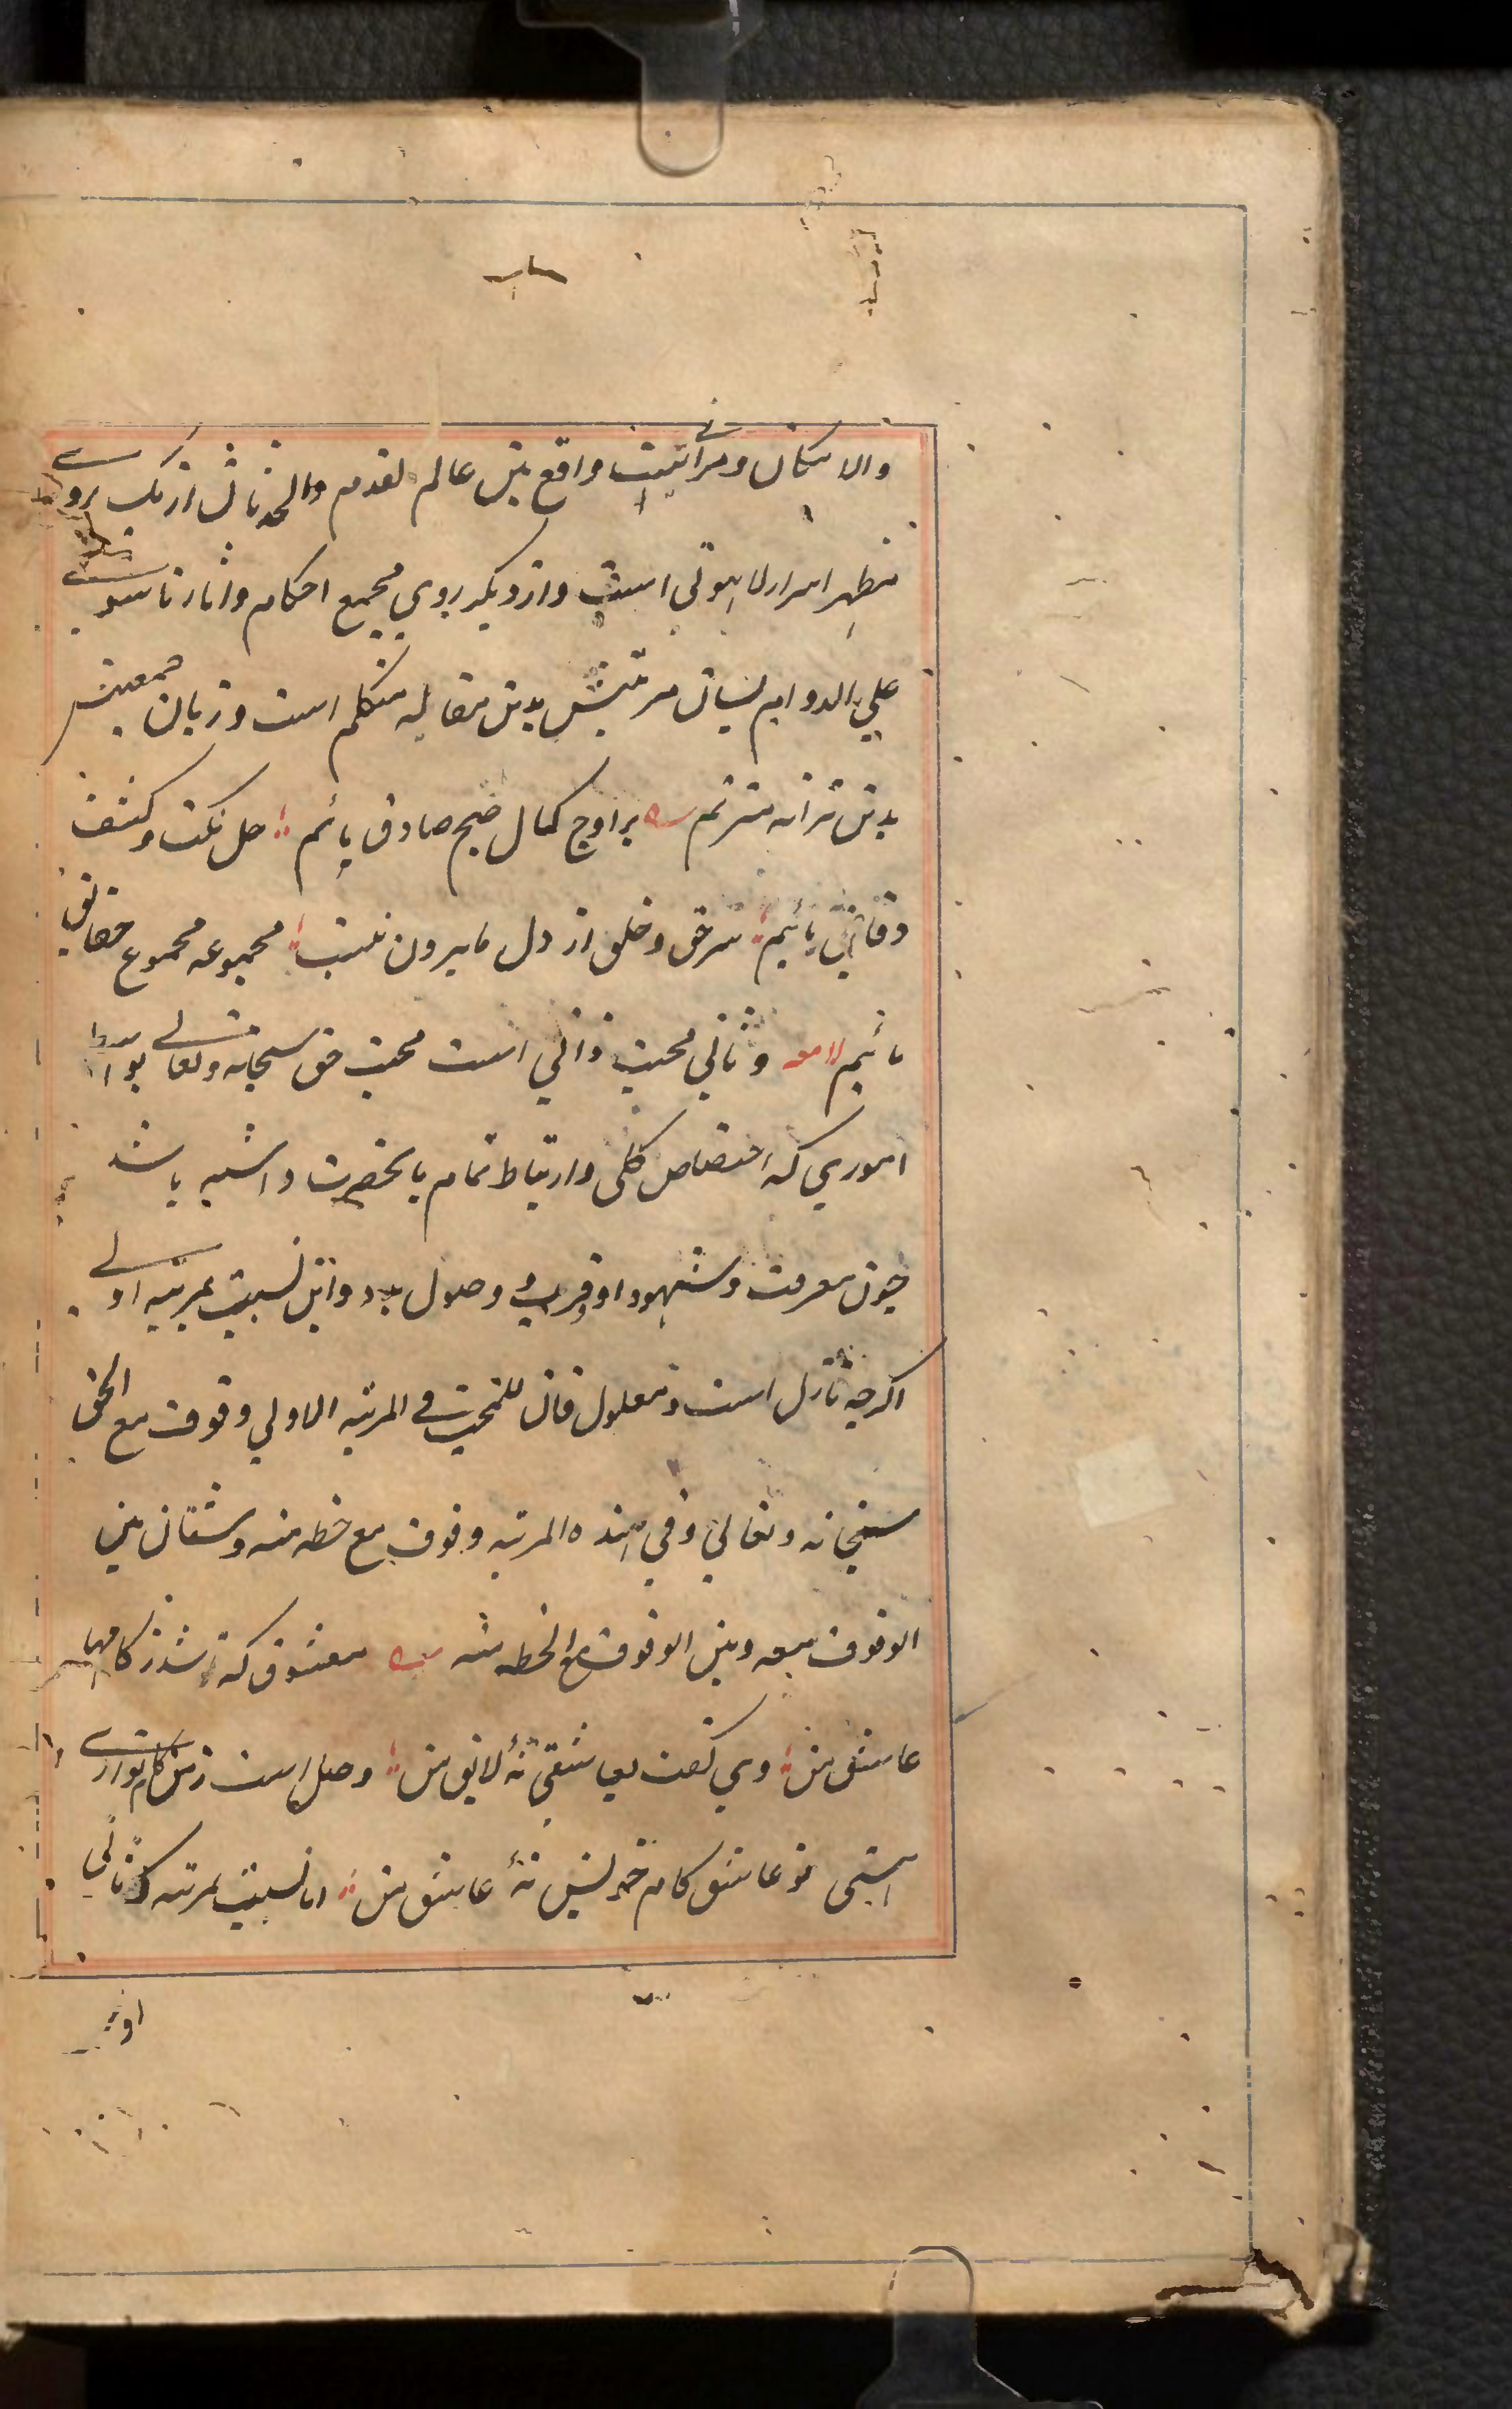 والامکان ومرآتیست واقع بین عالم القدم والحدثان از یک روی
مظهر اسرار لاهوتی است واز دیکر روی مجمع احکام واثار ناسوتی
علی الدوام لسان مرتبتش بدین مقاله متکلم است وزبان جمعیتش
بدین ترانه مترنم بر اوج کمال صبح صادق مائیم حل نکت وکشف
دقائق مائیم سر حق وخلق از دل ما بیرون نیست مجموعه مجموع حقائق
مائیم وثانی محبت ذاتی است محبت حق سبحانه وتعالی بواسطه
اموری که اختصاص کلی وارتباط تمام بانحضرت داشته باشد
چون معرفت وشهود او وقرب وصول بدو واین نسبت بمرتبه اولی
اکرچه نازل است ومعلول فان للمحب فی المرتبه الاولی وقوف مع الحق
سبحانه وتعالی وفی هذه المرتبه وقوف مع حظه منه وشتان بین
الوقوف معه وبین الوقوف مع الحظ منه معشوق که شد ز کامها
عاشق من وی کفت بعاشقی نهٔ لایق من وصل است ز من کام تو ارے
هستی تو عاشق کام خویش نهٔ عاشق من اما نسبت بمرتبه که ثانی
او